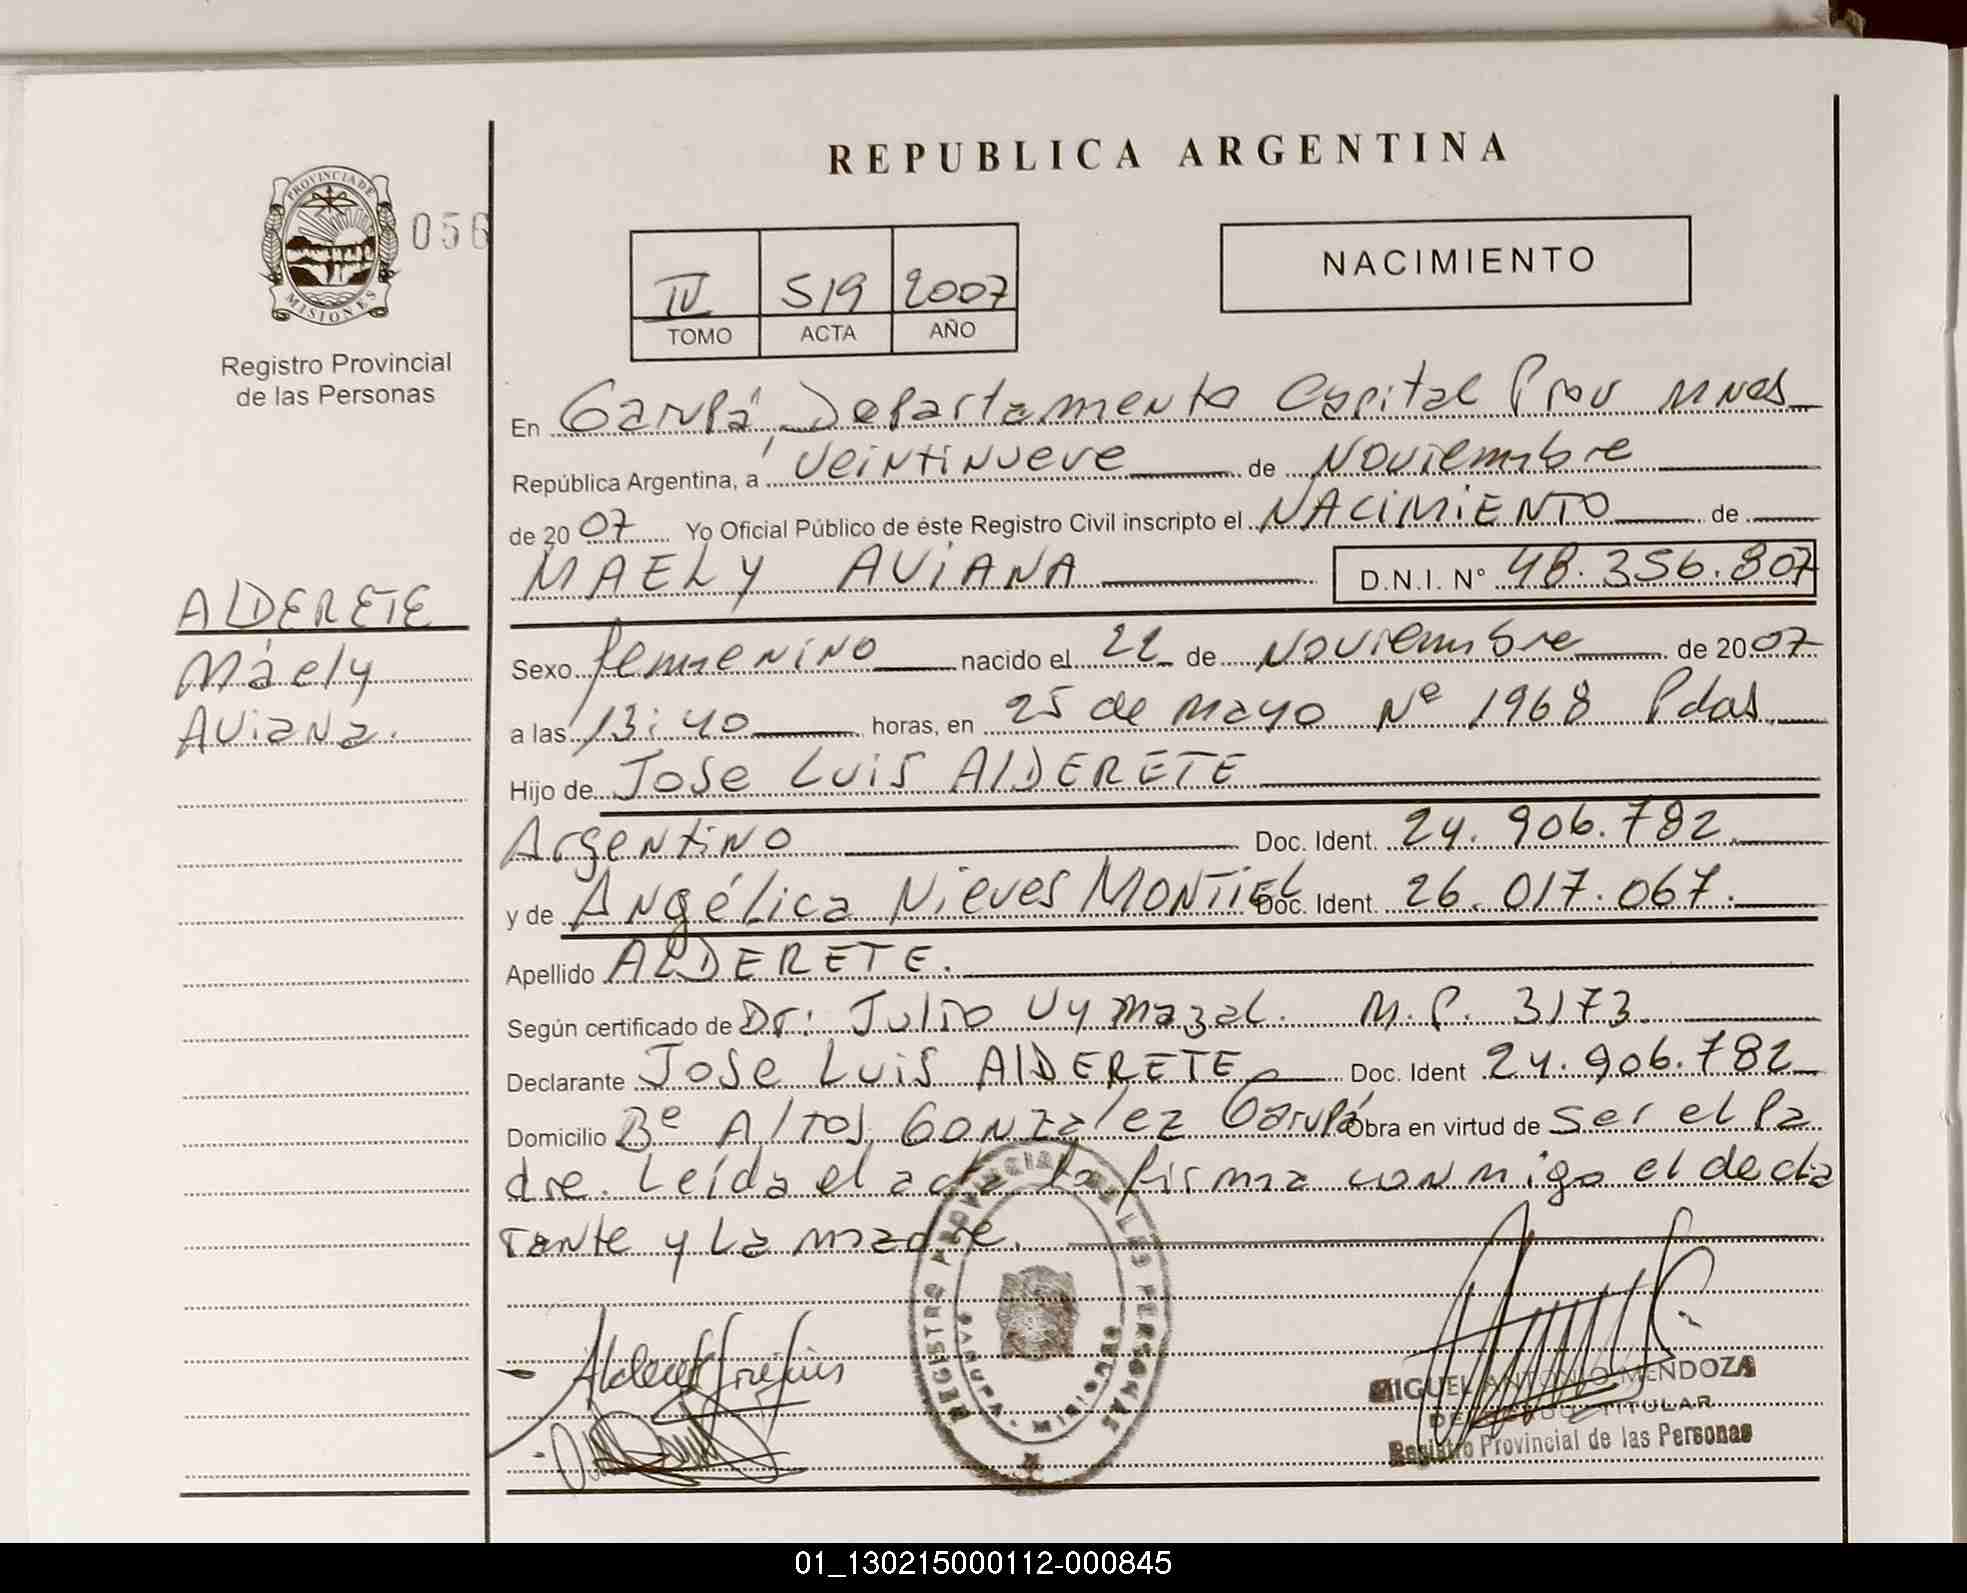 REPUBLICA ARGENTINA
PROVINCIA DE
MISIONES
056
Registro Provincial
de las Personas
IV 519 2007
TOMO ACTA AÑO
NACIMIENTO
ALDERETE
Máely
Aviana.
En Garupá, Departamento Capital Prov Mnes
República Argentina, a Veintinueve de Noviembre
de 2007 Yo Oficial Público de éste Registro Civil inscripto el NACIMIENTO de
MAELY AVIANA D.N.I. N° 48.356.807
Sexo femenino nacido el 22 de Noviembre de 2007
a las 13:40 horas, en 25 de mayo Nº 1968 Pdas.
Hijo de Jose Luis AlDERETE
Argentino Doc. Ident. 24.906.782.
y de Angélica Nieves MONTIEL Doc. Ident. 26.017.067.
Apellido ALDERETE.
Según certificado de Dr: Julio Uymazal. M.P. 3173
Declarante Jose Luis AlDERETE Doc. Ident 24.906.782
Domicilio Bº Altos Gonzalez Garupá Obra en virtud de ser el Pa
dre. Leída el acta la firma conmigo el decla
rante y La madre.
REGISTRO PROVINCIAL DE LAS PERSONAS
MISIONES
MIGUEL ANTONIO MENDOZA
TITULAR
Registro Provincial de las Personas
01_130215000112-000845